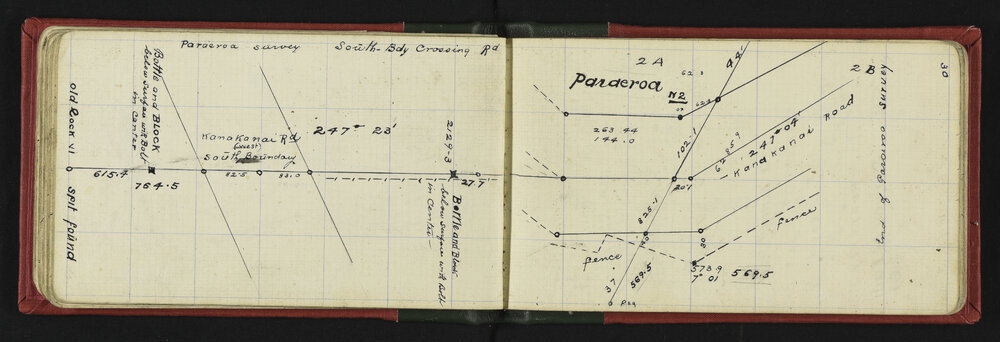 Paraeroa survey South-Bdy Crossing Rd
Bottle and BLOCK
below Surface with Bolt
in Center
old Rock VI Spit found
615.4
764.5
Kanakanai Rd
(West)
South Boundary
82.5
83.0
247° 23'
2129.3
27.7
Bottle and Block
below Surface with Bolt
in Center
30
2 A
Paraeroa
N2
62.3
44'
2 B
263 44
144.0
102.1
6785.9
247° 04'
Kanakanai Road
20.1
825.1
30
fence
fence
573.9
7° 01
569.5
569.5
37
Peg
Paraeroa Survey